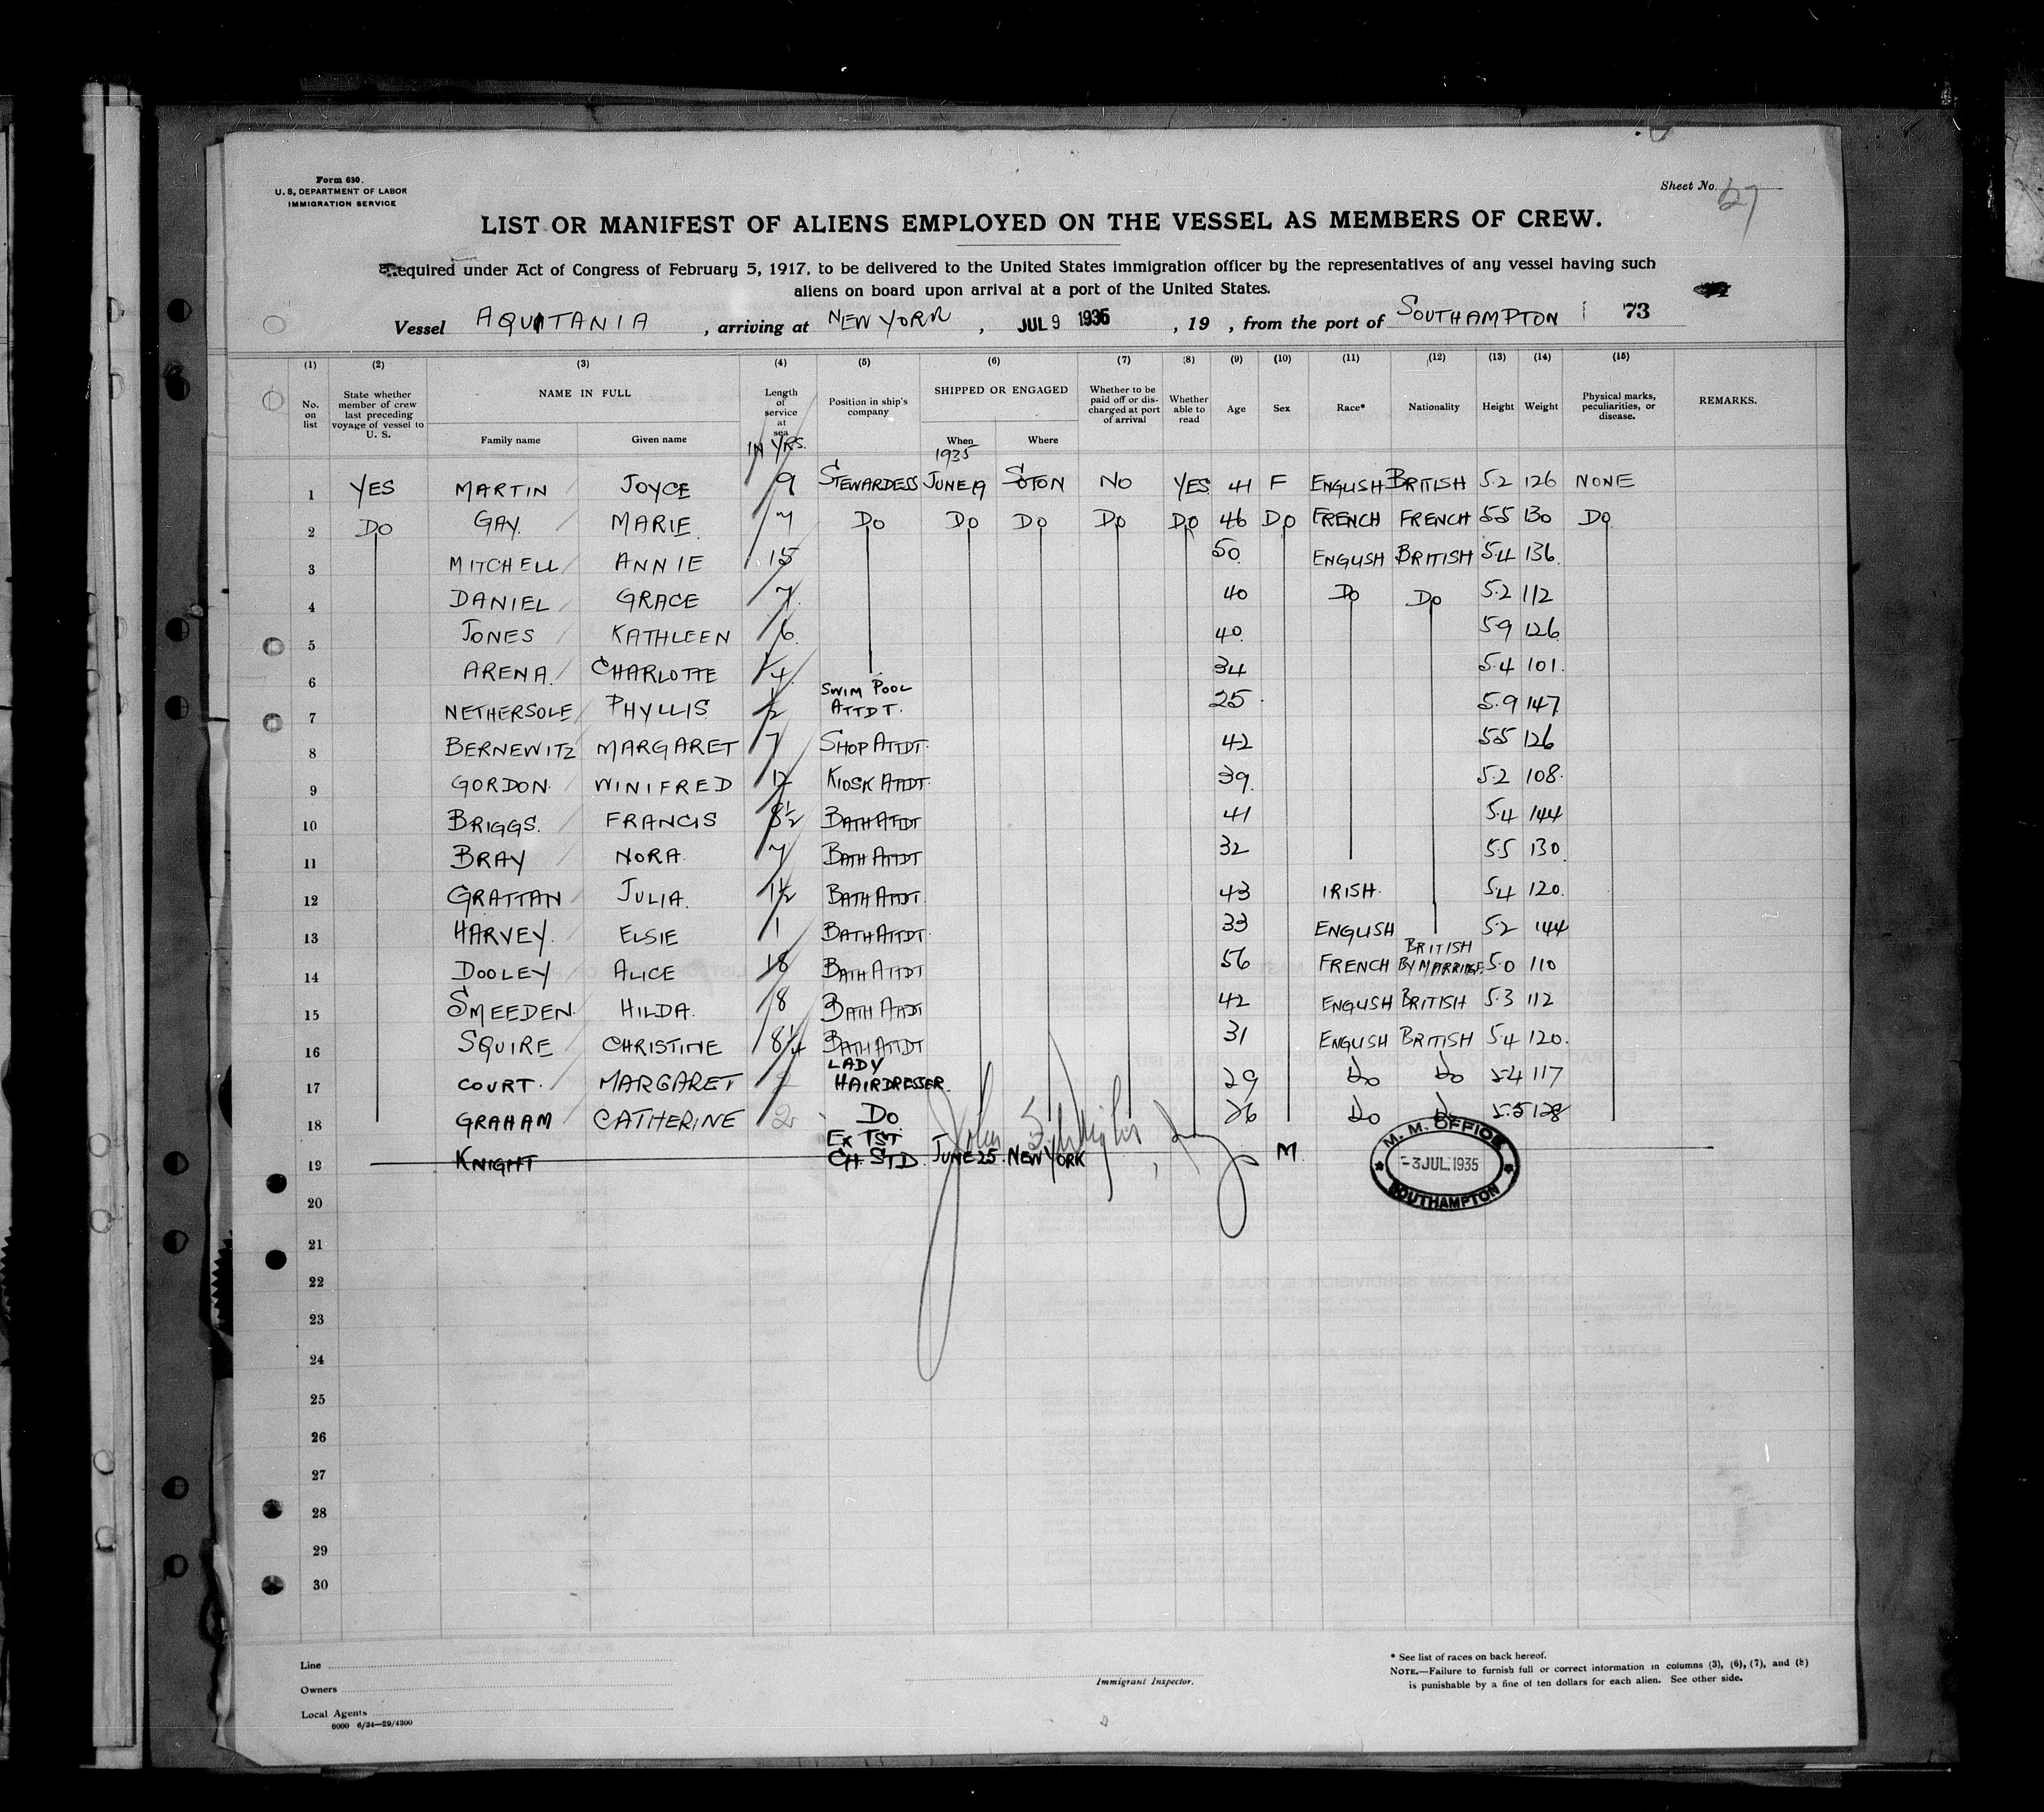 Form 630.
U. S. DEPARTMENT OF LABOR
IMMIGRATION SERVICE
Sheet No. 67
LIST OR MANIFEST OF ALIENS EMPLOYED ON THE VESSEL AS MEMBERS OF CREW.
Required under Act of Congress of February 5, 1917, to be delivered to the United States immigration officer by the representatives of any vessel having such
aliens on board upon arrival at a port of the United States.
Vessel AQUITANIA , arriving at NEW YORK , JUL 9 1935 , 19 , from the port of SOUTHAMPTON 73
(1) (2) (3) (4) (5) (6) (7) (8) (9) (10) (11) (12) (13) (14) (15)
No. on list State whether member of crew last preceding voyage of vessel to U. S. NAME IN FULL Family name Given name Length of service at sea IN YRS. Position in ship's company SHIPPED OR ENGAGED When 1935 Where Whether to be paid off or discharged at port of arrival Whether able to read Age Sex Race* Nationality Height Weight Physical marks, peculiarities, or disease. REMARKS.
1 YES MARTIN JOYCE 9 STEWARDESS JUNE 19 SOTON NO YES 41 F ENGLISH BRITISH 5.2 126 NONE
2 DO GAY MARIE 7 DO DO DO DO DO 46 DO FRENCH FRENCH 5.5 130 DO
3 MITCHELL ANNIE 15 50 ENGLISH BRITISH 5.4 136
4 DANIEL GRACE 7 40 DO DO 5.2 112
5 JONES KATHLEEN 6 40 5.9 126
6 ARENA CHARLOTTE 4 34 5.4 101
7 NETHERSOLE PHYLLIS ½ SWIM POOL ATTDT. 25 5.9 147
8 BERNEWITZ MARGARET 7 SHOP ATTDT. 42 5.5 126
9 GORDON WINIFRED 12 KIOSK ATTDT. 39 5.2 108
10 BRIGGS FRANCIS 8½ BATH ATTDT 41 5.4 144
11 BRAY NORA 7 BATH ATTDT 32 5.5 130
12 GRATTAN JULIA 1½ BATH ATTDT. 43 IRISH 5.4 120
13 HARVEY ELSIE 1 BATH ATTDT. 33 ENGLISH 5.2 144
14 DOOLEY ALICE 18 BATH ATTDT 56 FRENCH BRITISH BY MARRIAGE 5.0 110
15 SMEEDEN HILDA 8 BATH ATTDT 42 ENGLISH BRITISH 5.3 112
16 SQUIRE CHRISTINE 8¼ BATH ATTDT 31 ENGLISH BRITISH 5.4 120
17 COURT MARGARET 2 LADY HAIRDRESSER 29 Do Do 5.4 117
18 GRAHAM CATHERINE 2 DO 26 Do Do 5.5 128
19 KNIGHT EX TST. CH. STD JUNE 25 NEW YORK M
M. M. OFFICE
-3 JUL 1935
SOUTHAMPTON
20
21
22
23
24
25
26
27
28
29
30
Line
Owners
Local Agents
6000 6/34—29/4300
Immigrant Inspector.
* See list of races on back hereof.
NOTE.—Failure to furnish full or correct information in columns (3), (6), (7), and (8)
is punishable by a fine of ten dollars for each alien. See other side.